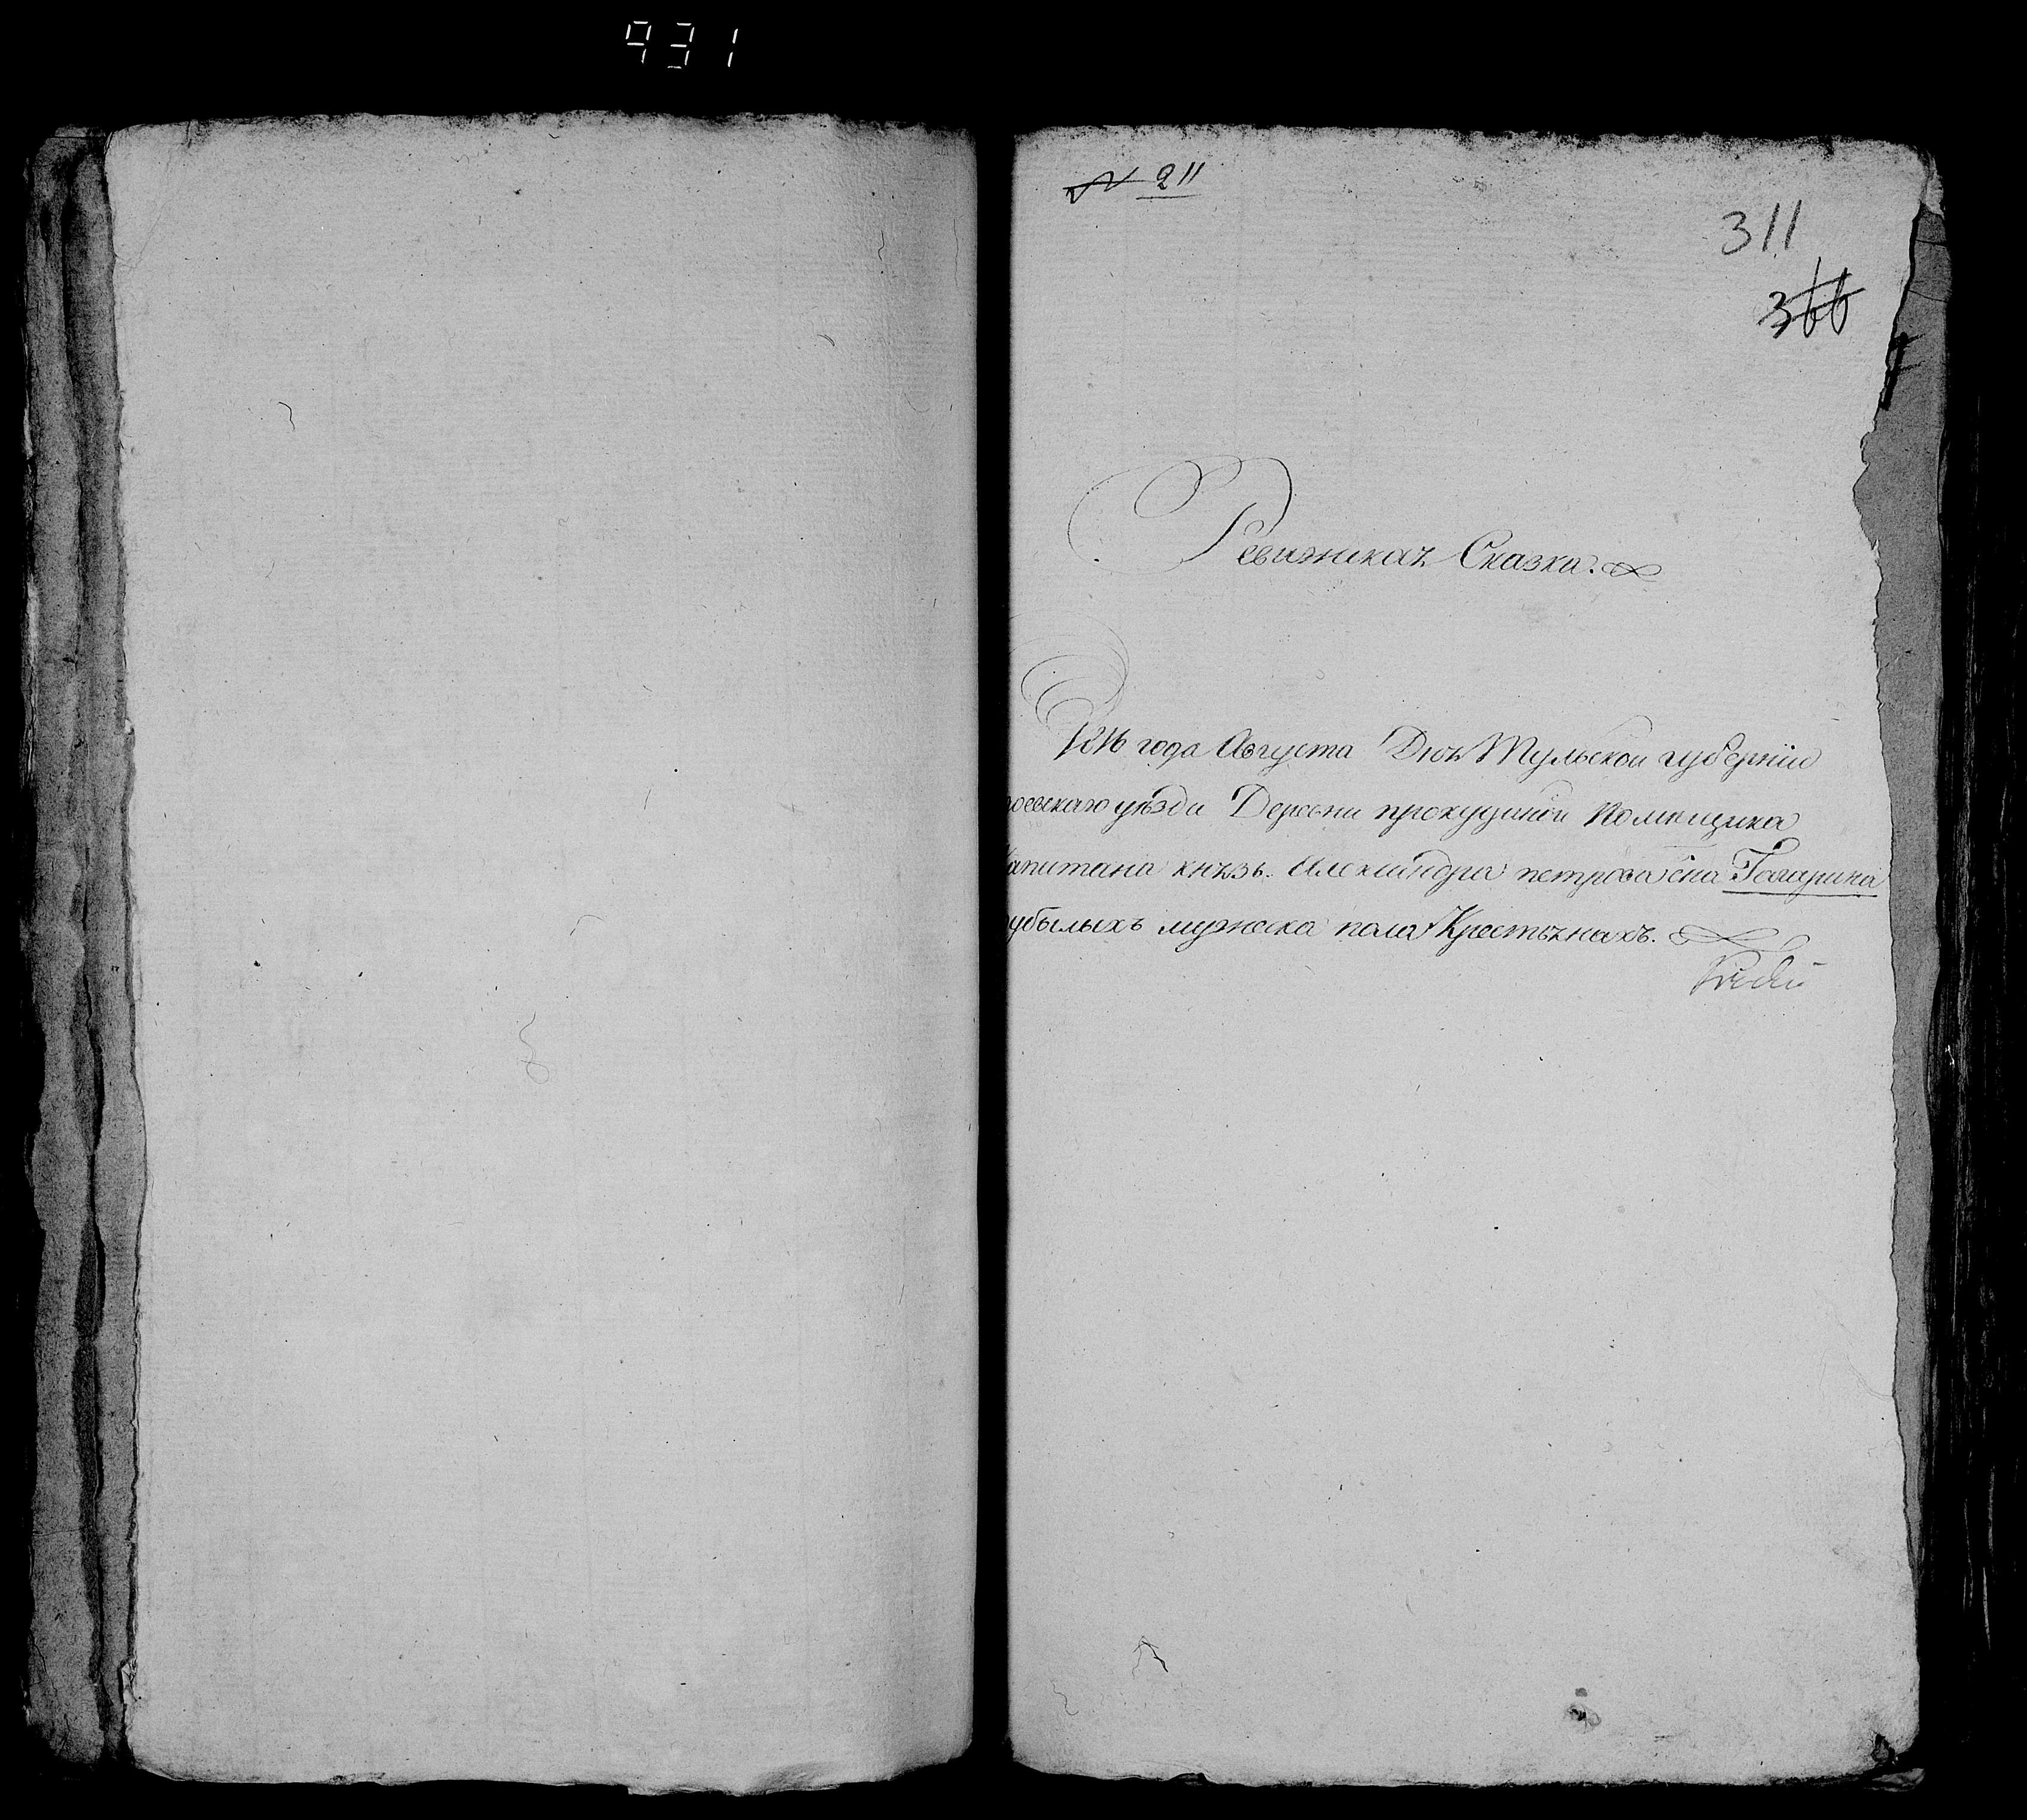 931
№ 211
311
366
Ревижская Сказка.
1816 года Августа Дня Тульской губернии
оевскаго уѣзда Деревни прокудиной Помещика
апитана князь Александра петрова сна Гагарина
убылыхъ мужеска пола Крестьянахъ.